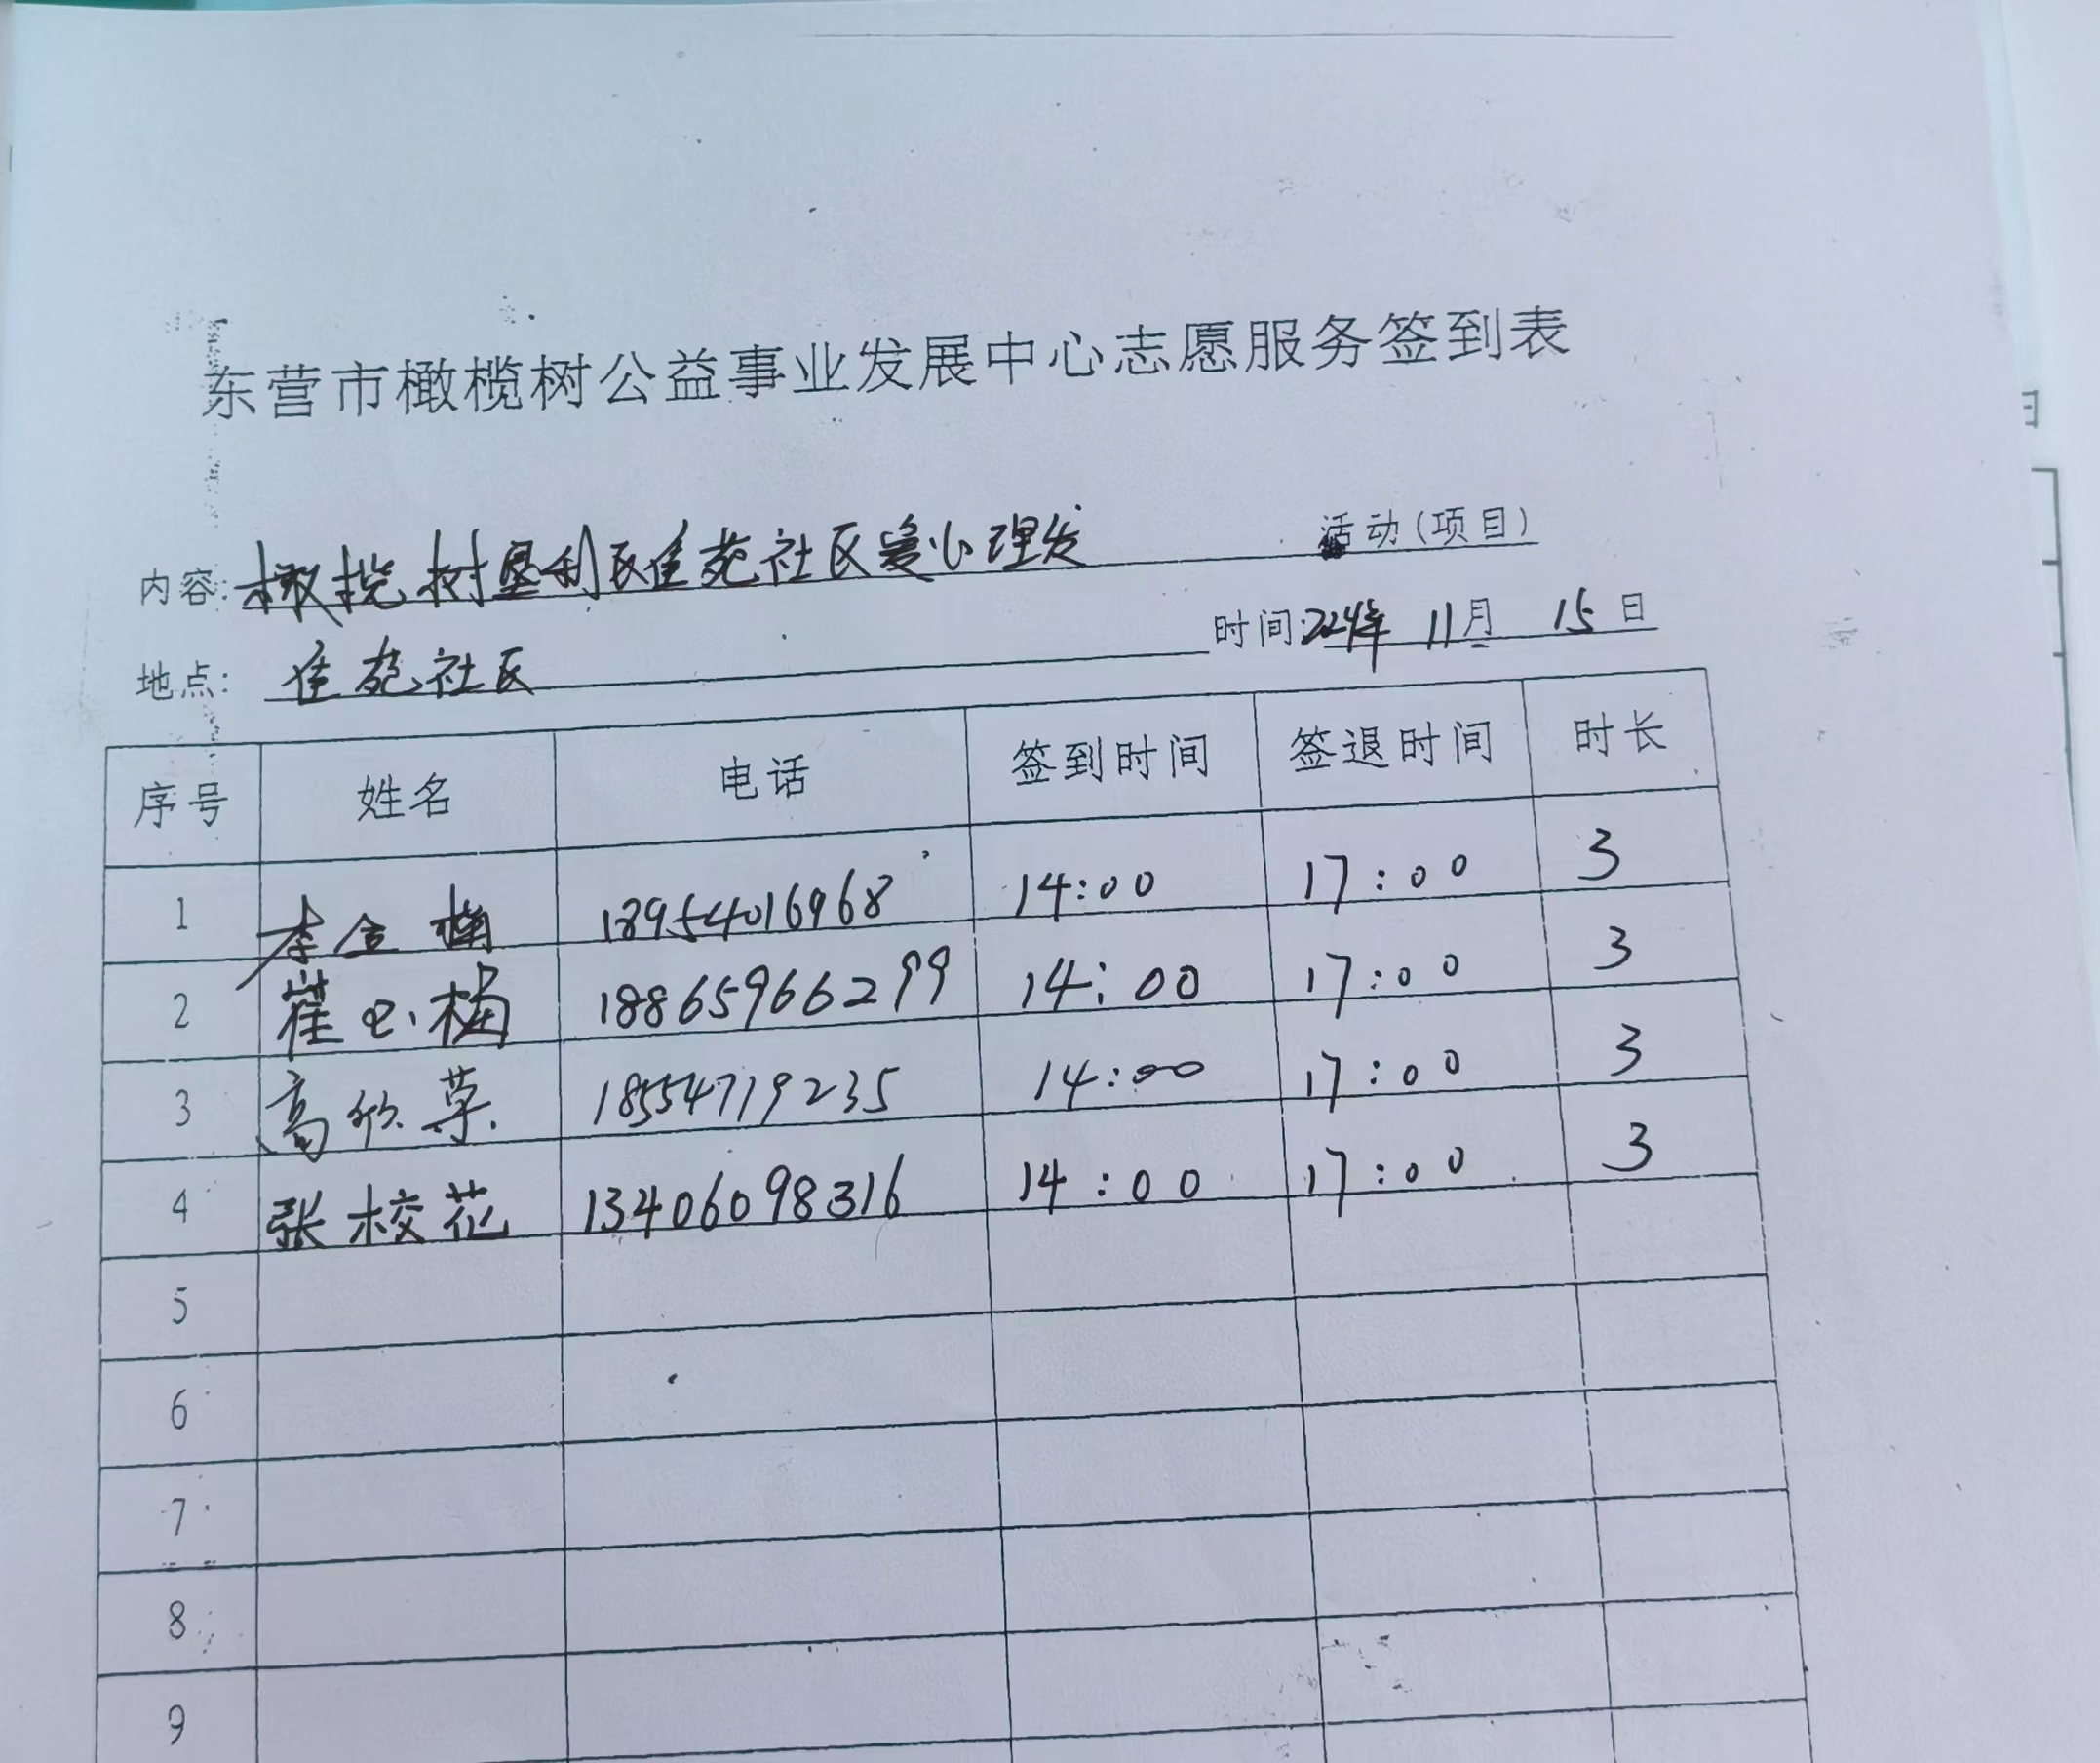 东营市橄榄树公益事业发展中心志愿服务签到表
内容:橄榄树垦利区佳苑社区爱心理发 活动(项目)
地点: 佳苑社区 时间:2024年 11月 15日
序号 姓名 电话 签到时间 签退时间 时长
1 李金梅 18954016968 14:00 17:00 3
2 崔 梅 18865966299 14:00 17:00 3
3 高欣 18554719235 14:00 17:00 3
4 张校花 13406098316 14:00 17:00 3
5
6
7
8
9